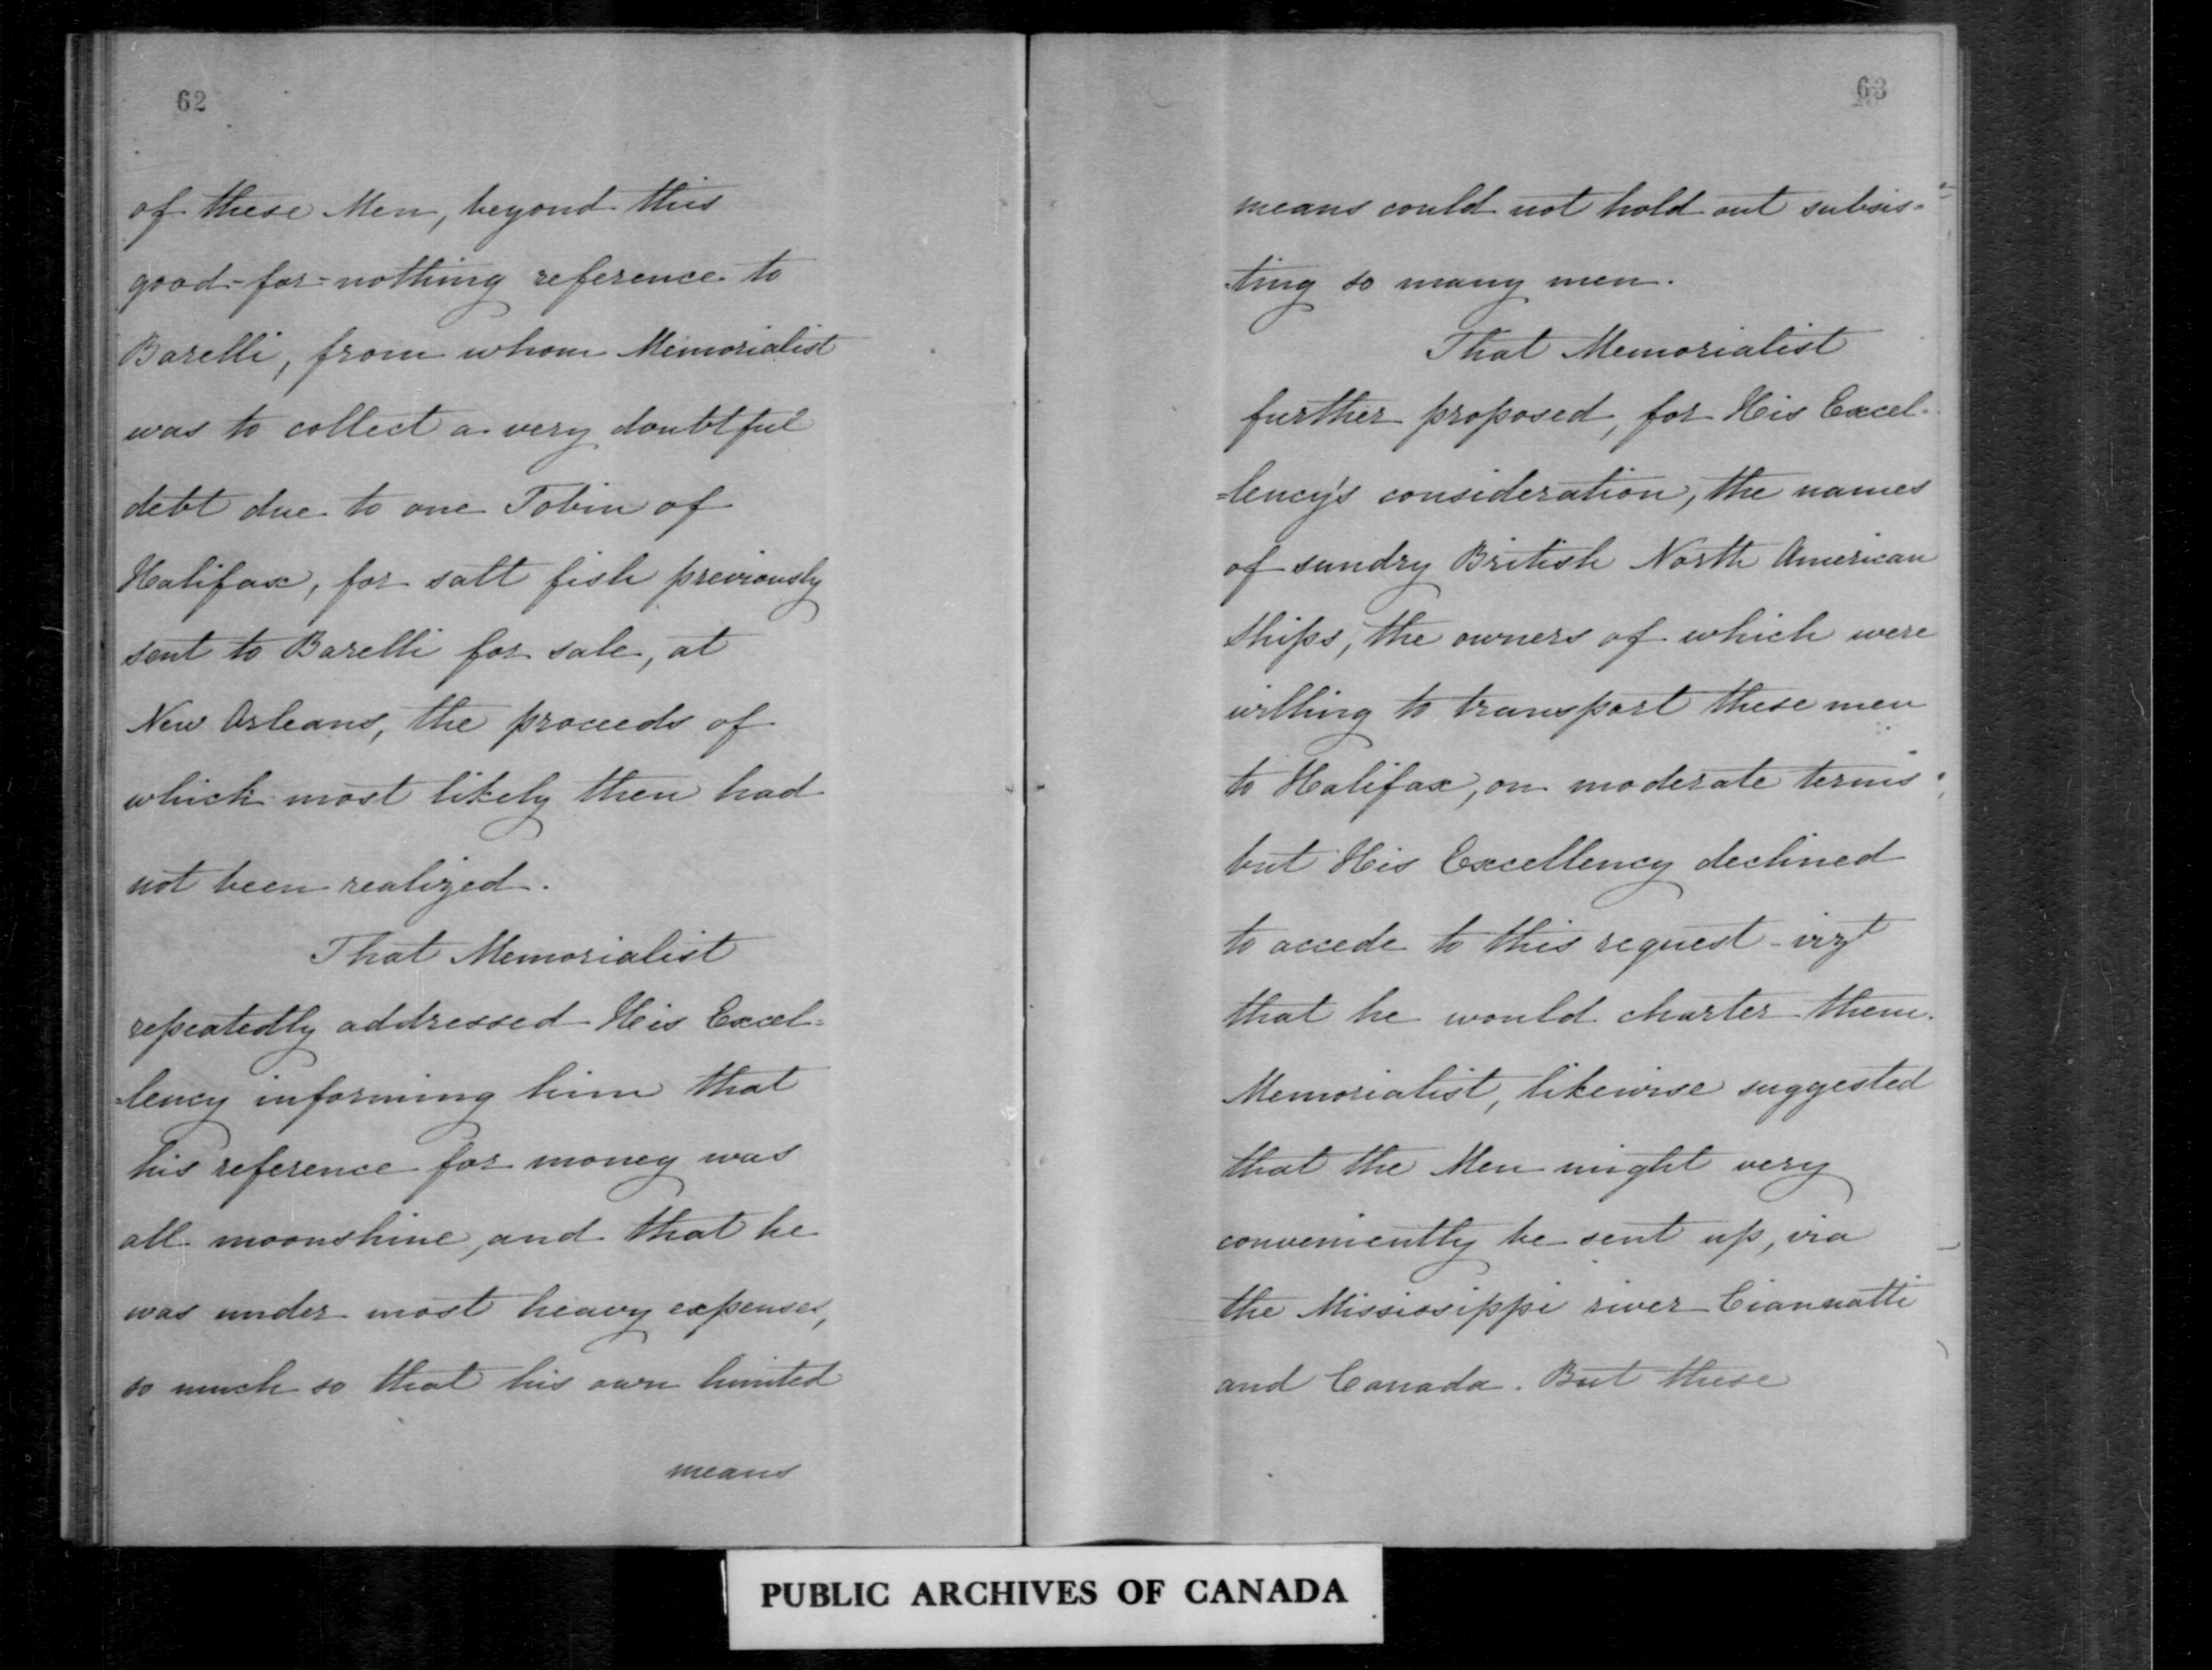 62
of these Men, beyond this
good-for-nothing reference to
Barelli, from whom Memorialist
was to collect a very doubtful
debt due to one Tobin of
Halifax, for salt fish previously
sent to Barelli for sale, at
New Orleans, the proceeds of
which most likely then had
not been realized.
That Memorialist
repeatedly addressed His Excel=
=lency informing him that
his reference for money was
all moonshine, and that he
was under most heavy expenses,
so much so that his own limited
means
63
means could not hold out subsis=
=ting so many men.
That Memorialist
further proposed, for His Excel-
=lency's consideration, the names
of sundry British North American
Ships, the owners of which were
willing to transport these men
to Halifax, on moderate terms;
but His Excellency declined
to accede to this request - vizt
that he would charter them.
Memorialist, likewise suggested
that the Men might very
conveniently be sent up, via
the Mississippi river Ciannatti
and Canada. But these
PUBLIC ARCHIVES OF CANADA